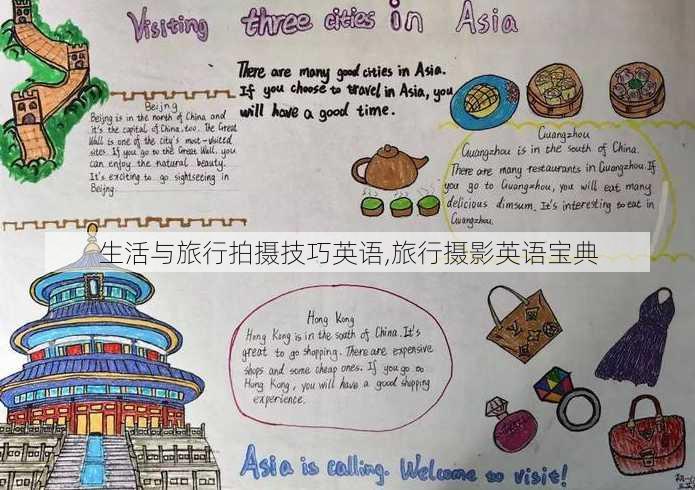 Visiting three cities in Asia
There are many good cities in Asia.
If you choose to travel in Asia, you
will have a good time.
Beijng
Beijng is in the north of China and
it's the capital of China, too. The Great
Wall is one of the city's most-visited
sites. If you go to the Great Wall, you
can enjoy the natural beauty.
It's exciting to go sightseeing in
Beijng.
Guangzhou
Guangzhou is in the south of China.
There are many restaurants in Guangzhou. If
you go to Guangzhou, you will eat many
delicious dimsum. It's interesting to eat in
Guangzhou.
生活与旅行拍摄技巧英语,旅行摄影英语宝典
Hong Kong
Hong Kong is in the south of China. It's
great to go shopping. There are expensive
shops and some cheap ones. If you go to
Hong Kong, you will have a good shopping
experience.
Asia is calling. Welcome to visit!